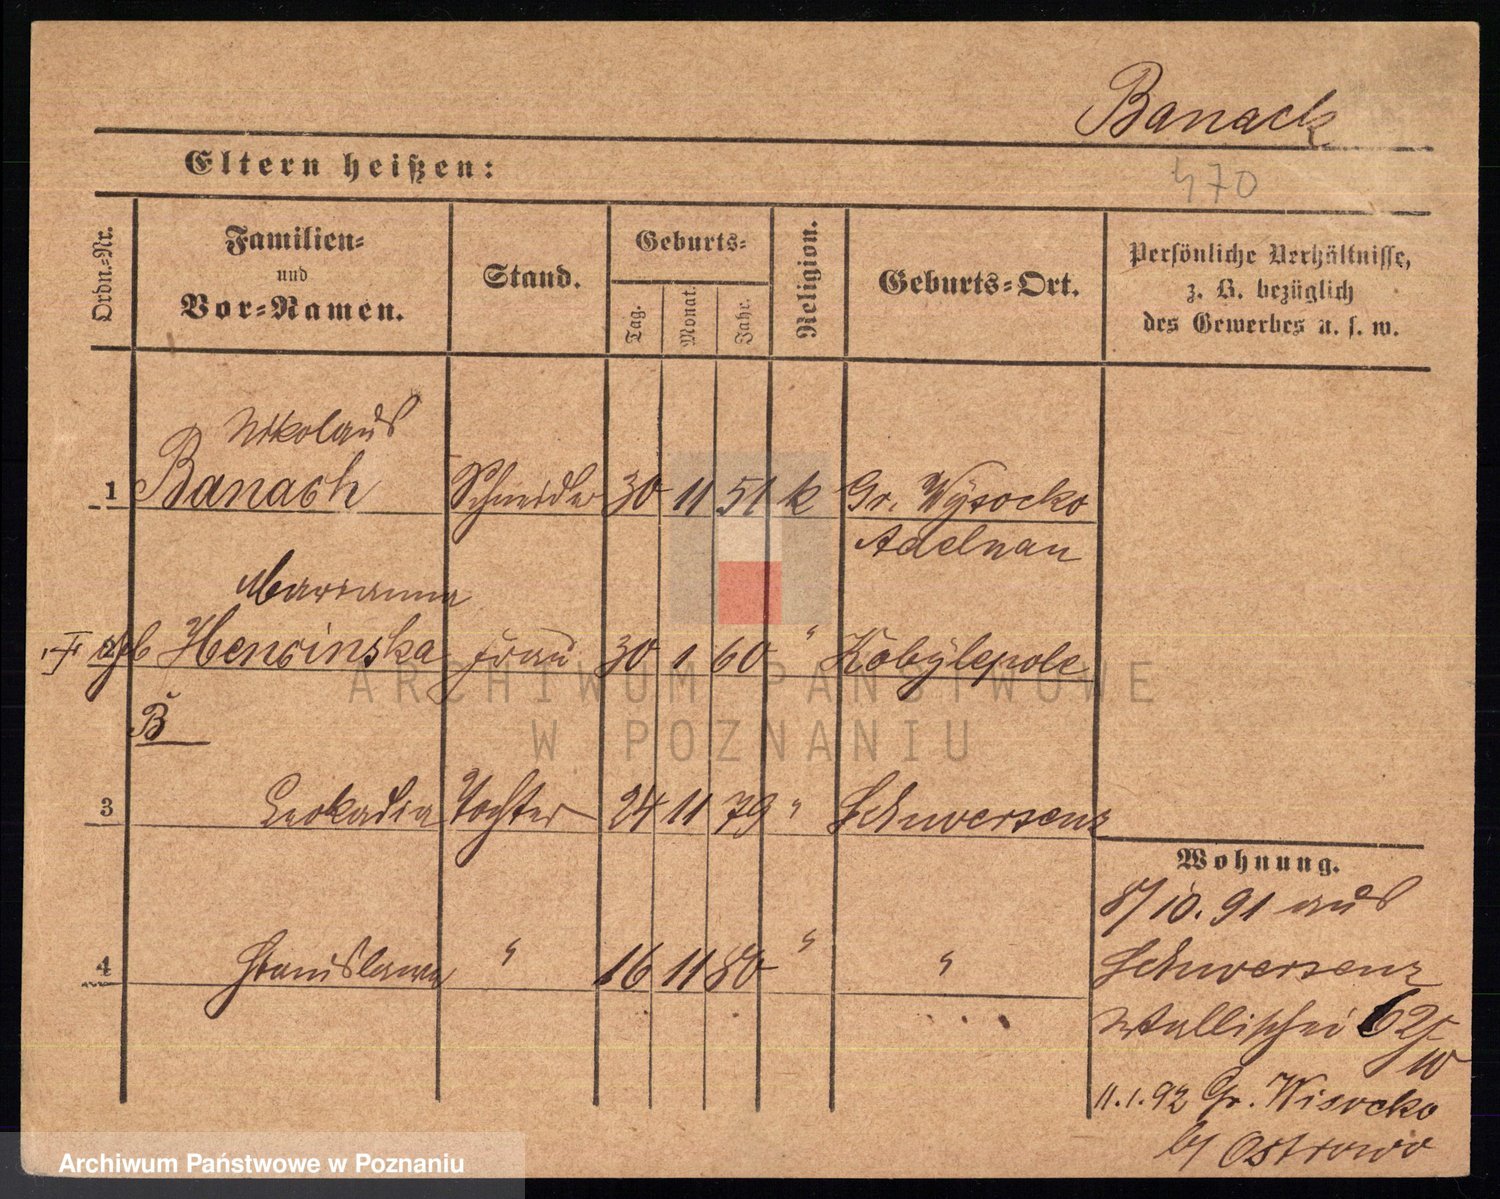 Banach
470
Eltern heißen:
Ordn.=Nr.
Familien=
und
Vor=Namen.
Stand.
Geburts=
Tag.
Monat.
Jahr.
Religion.
Geburts=Ort.
Persönliche Verhältnisse,
z. B. bezüglich
des Gewerbes u. s. w.
Nikolaus
1 Banach Schneider 30 11 51 k Gr. Wysocko
Adelnau
Marianna
2 geb Frau 30 1 60 " Kobylepole
B
3 Leokadia Tochter 24 11 79 " Schwersenz
Wohnung.
8/10.91 aus
4 Stanislawa " 16 11 80 " "
Schwersenz
Wallischei
11.1.92 Gr. Wisocko
b/ Ostrowo
ARCHIWUM PAŃSTWOWE
W POZNANIU
Archiwum Państwowe w Poznaniu